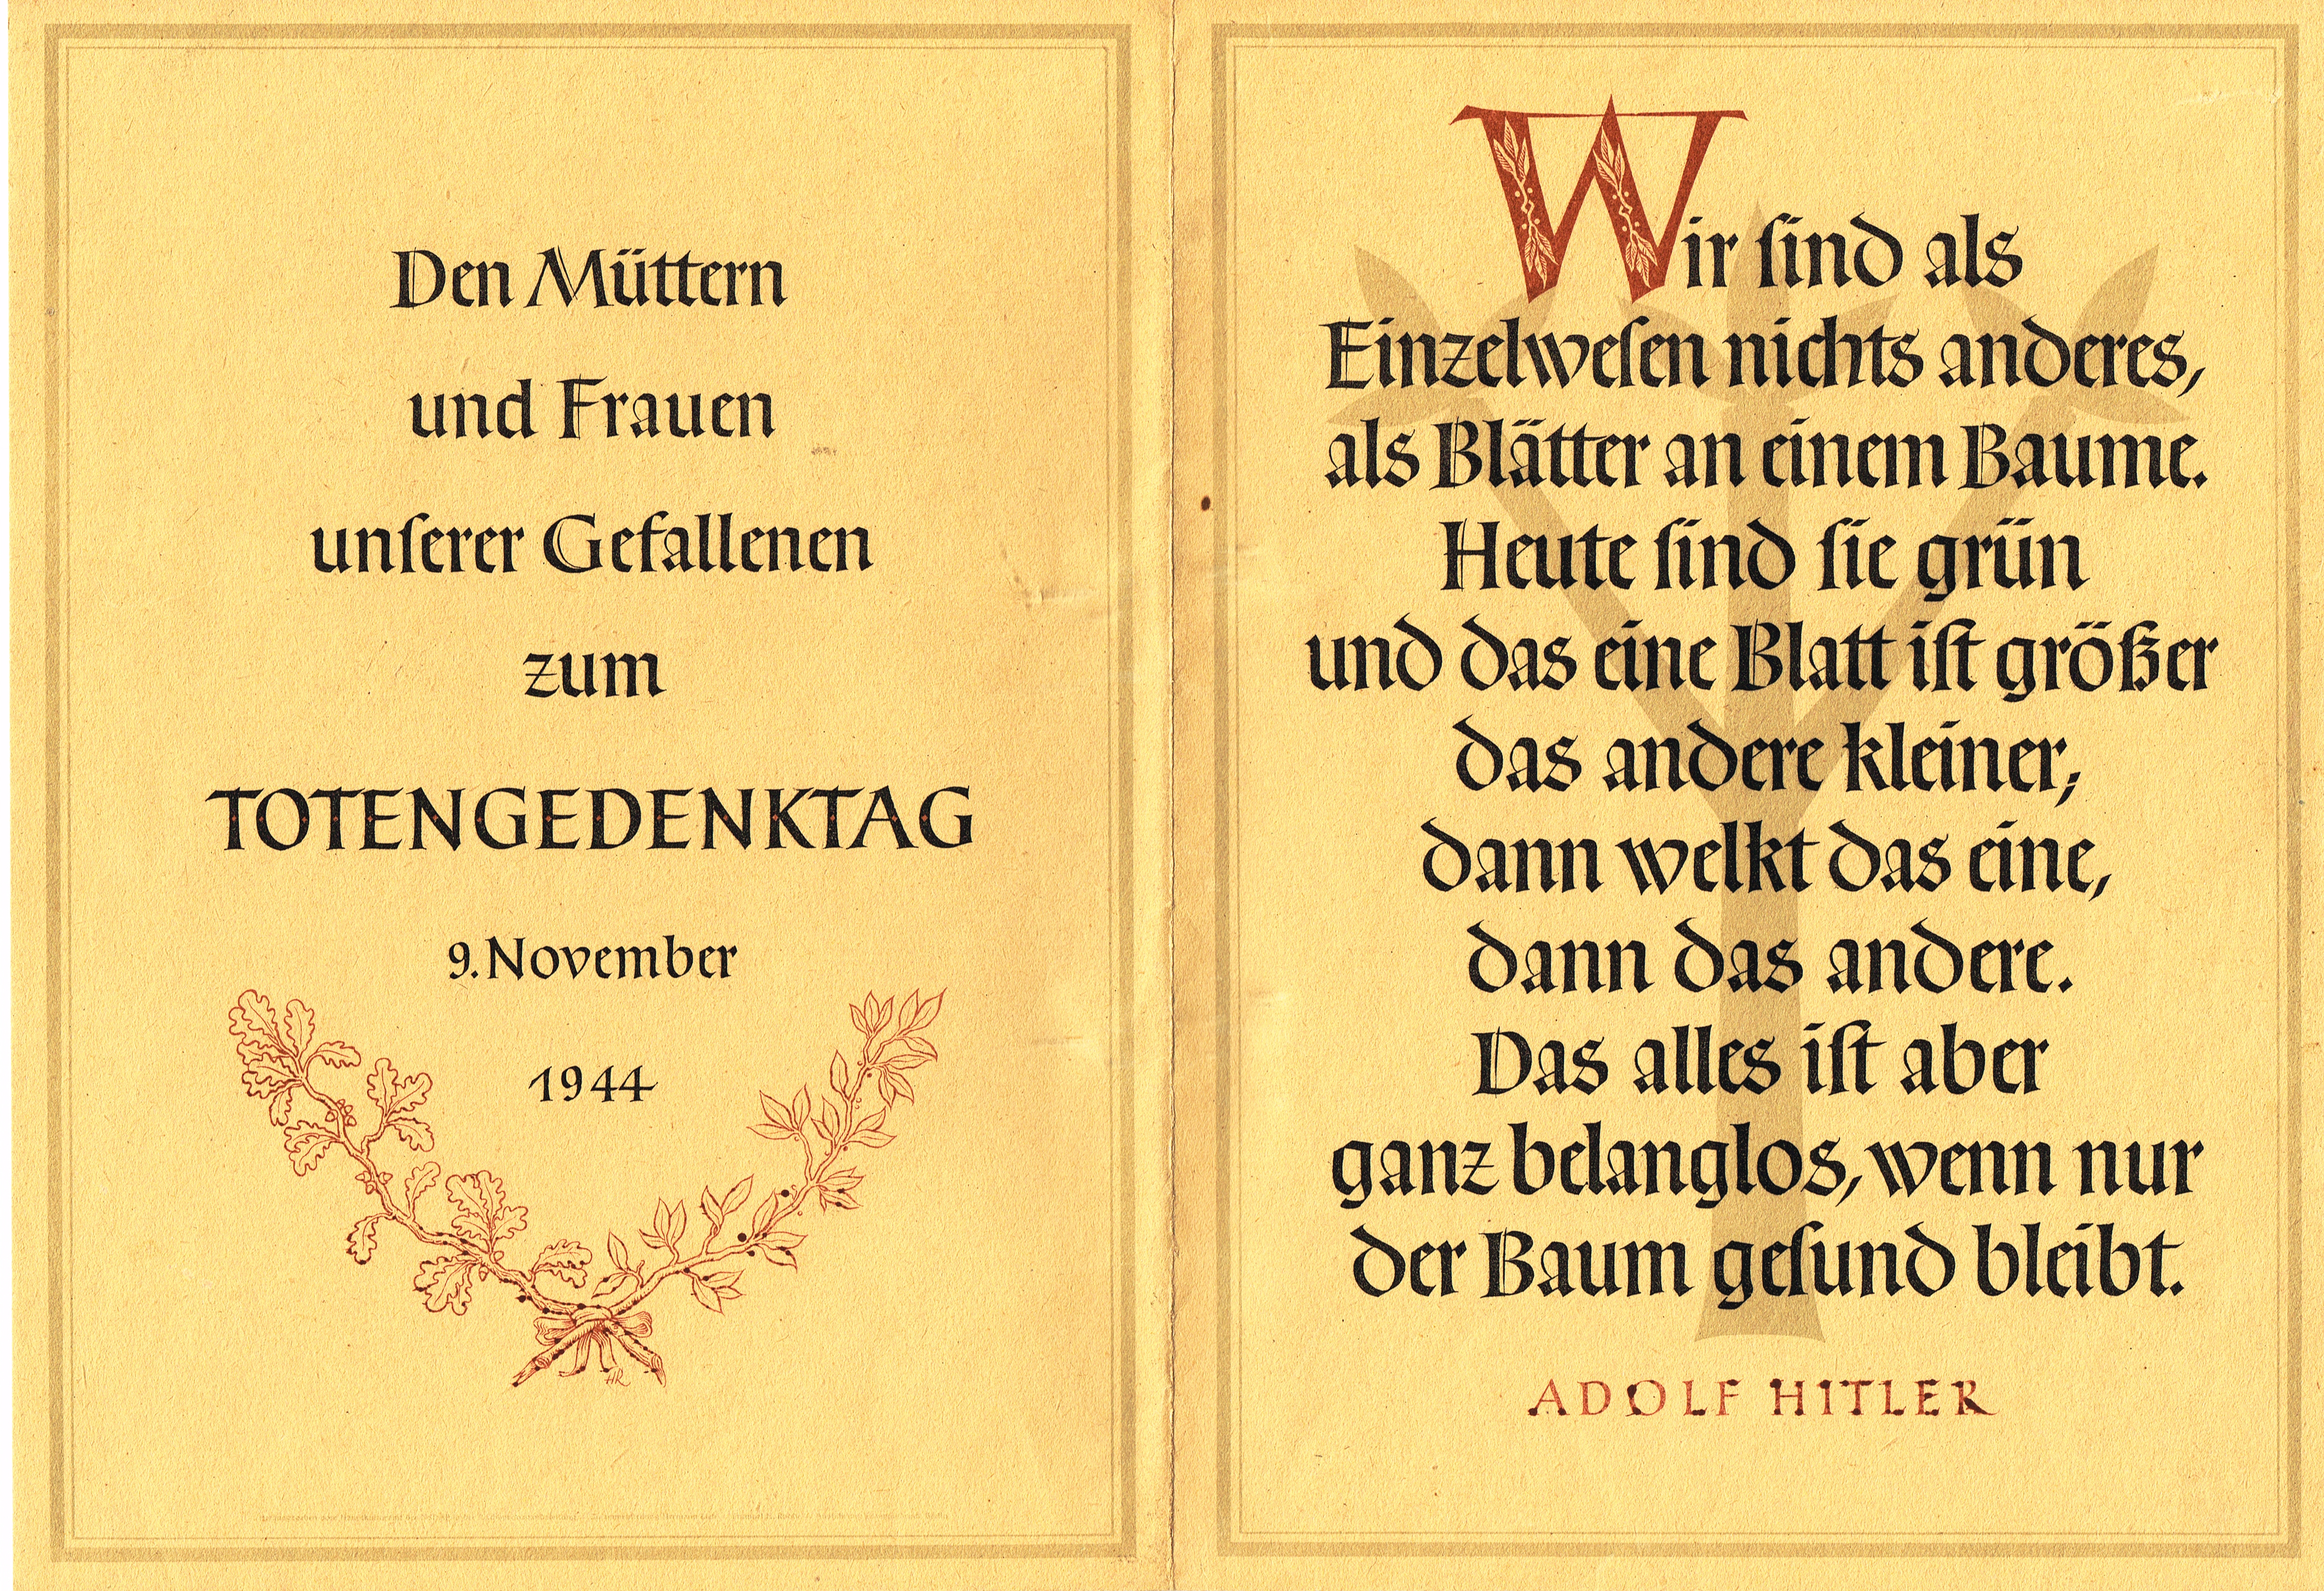 Den Müttern
und Frauen
unſerer Gefallenen
zum
TOTENGEDENKTAG
9. November
1944
HR
Wir ſind als
Einzelweſen nichts anderes,
als Blätter an einem Baume.
Heute ſind ſie grün
und das eine Blatt iſt größer
das andere kleiner;
dann welkt das eine,
dann das andere.
Das alles iſt aber
ganz belanglos, wenn nur
der Baum geſund bleibt.
ADOLF HITLER